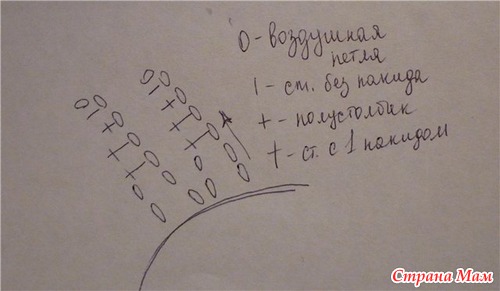 0 - воздушная
петля
1 - ст. без накида
+ - полустолбик
† - ст. с 1 накидом
Страна Мам